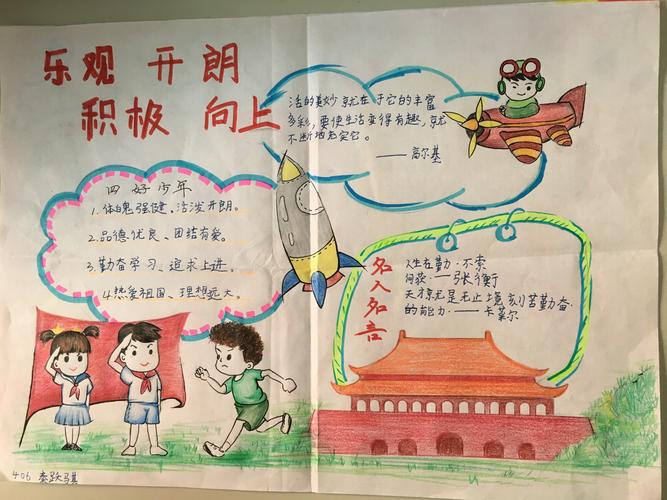 乐观 开朗
积极 向上
活的美妙就在于它的丰富
多彩,要使生活变得有趣,就
不断地充实它。
——高尔基
四好少年
1.体魄强健、活泼开朗。
2.品德优良、团结有爱。
3.勤奋学习、追求上进。
4.热爱祖国、理想远大。
名人名言
人生在勤·不索
何获·——张衡
天才就是无止境刻苦勤奋
的能力·——卡莱尔
406 秦跃骐